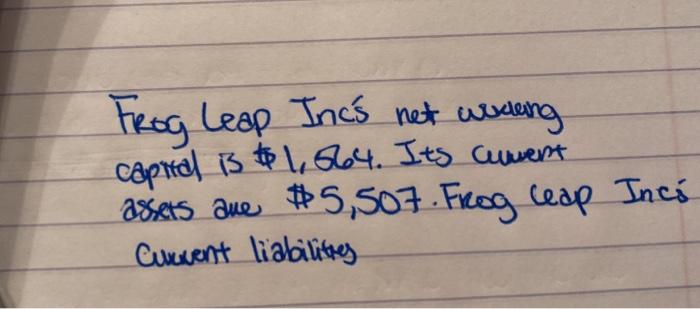 Frog Leap Inc's net working
capital is $1,564. Its current
assets are $5,507. Frog Leap Inc's
Current liabilities